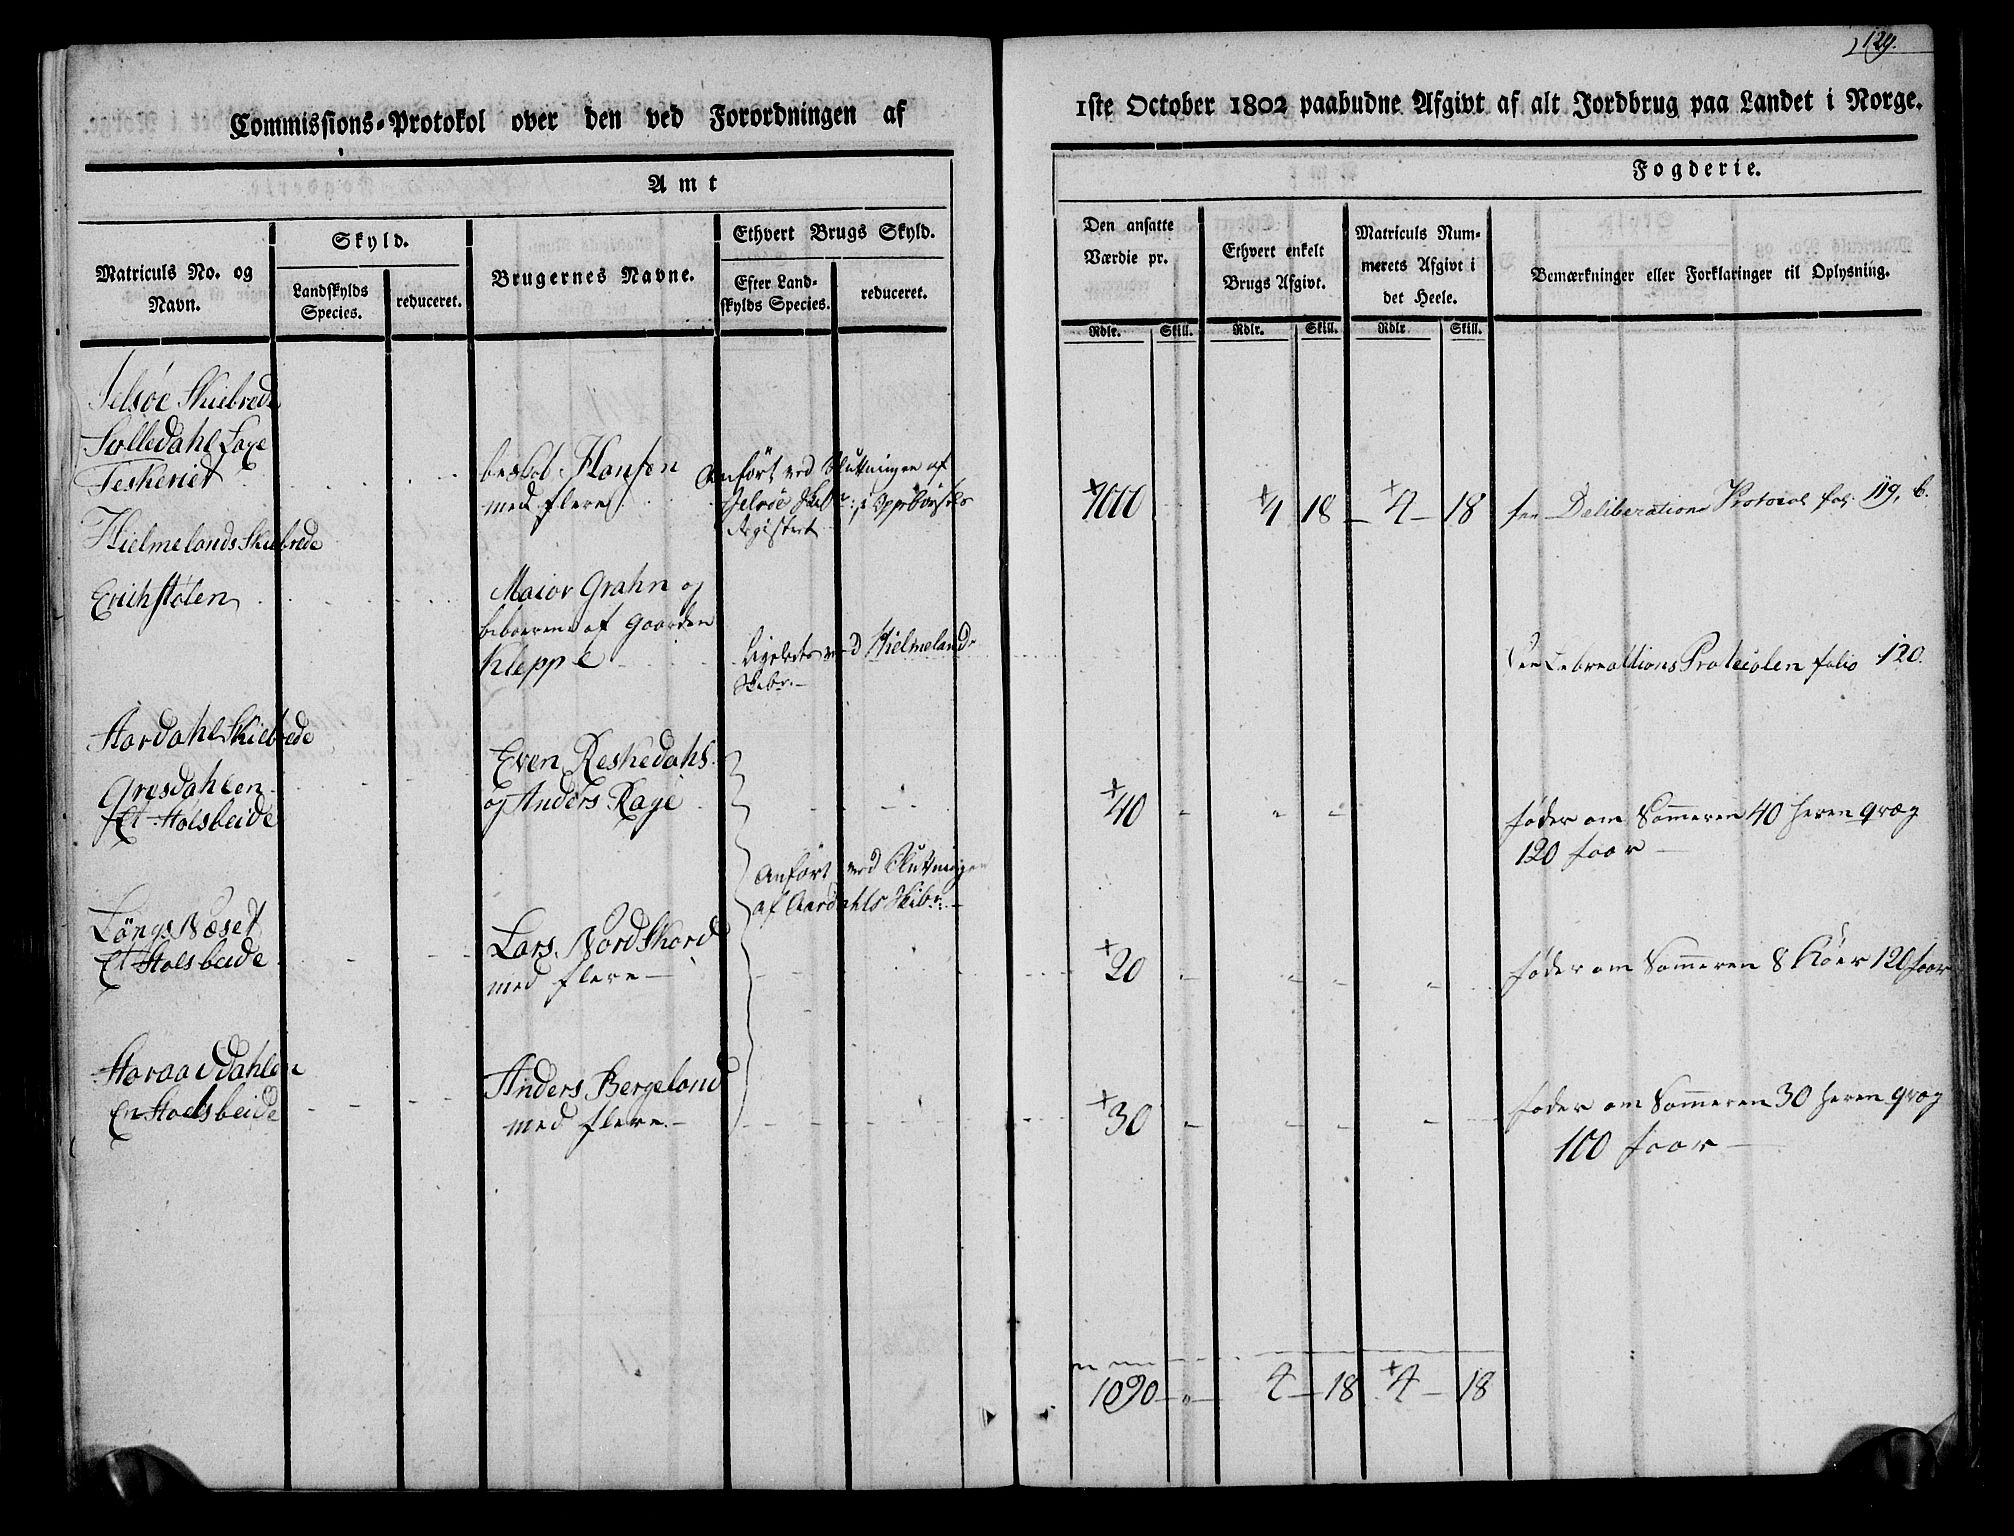 129.
Commissions-Protokol over den ved Forordningen af
1ste October 1802 paabudne Afgivt af alt Jordbrug paa Landet i Norge.
Amt
Fogderie.
Matriculs No. og Navn.
Skyld.
Landskylds Species.
reduceret.
Brugernes Navne.
Ethvert Brugs Skyld.
Efter Land-
skylds Species.
reduceret.
Den ansatte
Værdie pr.
Ethvert enkelt
Brugs Afgivt.
Matriculs Num-
merets Afgivt i
det Heele.
Bemærkninger eller Forklaringer til Oplysning.
Rdlr. Skill. Rdlr. Skill. Rdlr. Skill.
Jelsøe Skibrede
Laxe
Feskeriet
Hansen
med flere
Anført ved Slutningen af
Jelsøe Skibr: i Oppebørsels
Registeret
1000 4 18 4 18 see Deliberations Protocol fol: 119, b.
Hielmelands Skibrede
Erichstølen
Maior Grahn og
beboerne af Gaarden
Kleppe
Ligeledes ved Hielmelands
Skibr.
Protocolen folio 120.
Aardahl Skibrede
Gresdahlen
Et Stølsbeide
Even Reskedahl
og Anders Rage
40
føder om Sommeren 40 Heren græg
120 faar
Anført ved Slutningen
af Aardahls Skibr.
Længs Næset
Et Stølsbeide
Lars Nordskord
med flere
20
føder om Sommeren 8 Køer 120 faar
Storaaedahlen
En Støelsbeide
Anders Bergeland
med flere
30
føder om Sommeren 30 Heren græg
100 faar
1090 4 18 4 18